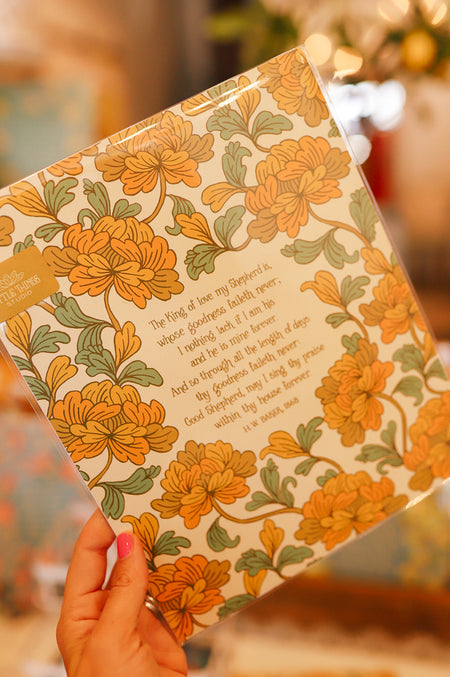 TTLE THINGS
STUDIO
The King of love my Shepherd is,
whose goodness faileth never;
I nothing lack if I am his
and he is mine forever.
And so through all the length of days
thy goodness faileth never:
Good Shepherd, may I sing thy praise
within thy house forever.
H.W. BAKER, 1868